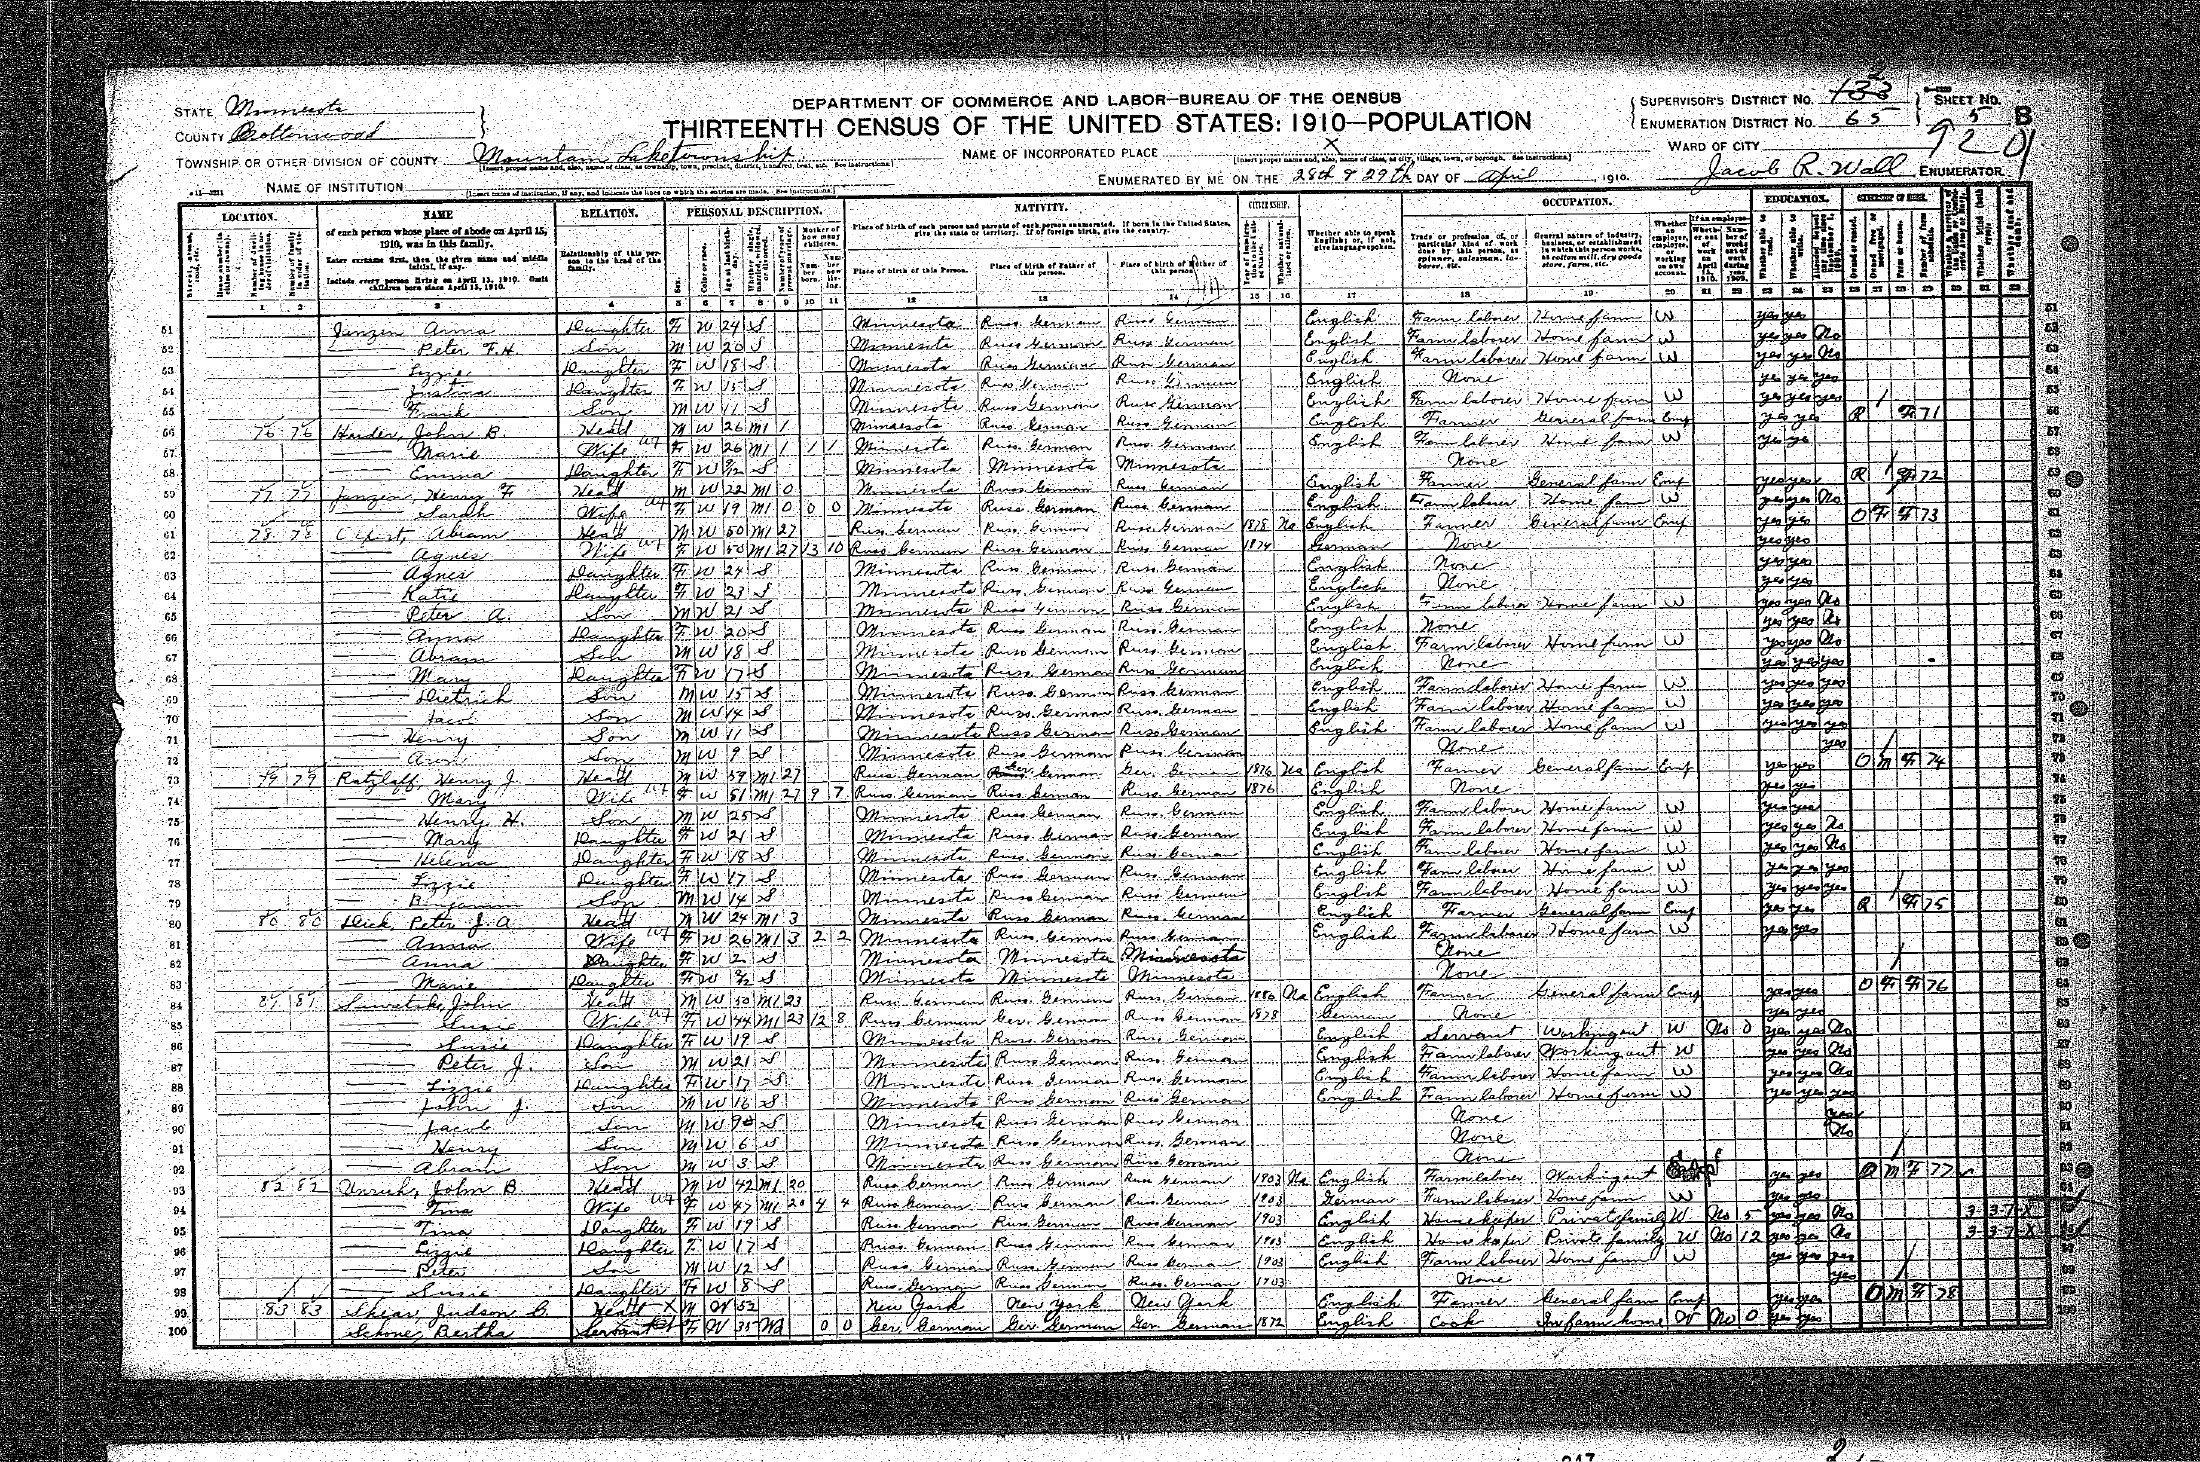 STATE Minnesota
COUNTY Cottonwood
TOWNSHIP OR OTHER DIVISION OF COUNTY Mountain Lake township
NAME OF INSTITUTION
DEPARTMENT OF COMMERCE AND LABOR—BUREAU OF THE CENSUS
THIRTEENTH CENSUS OF THE UNITED STATES: 1910—POPULATION
NAME OF INCORPORATED PLACE X
ENUMERATED BY ME ON THE 28th & 29th DAY OF April, 1910.
SUPERVISOR'S DISTRICT NO. 2
ENUMERATION DISTRICT NO. 65
SHEET NO. 5 B
WARD OF CITY
9201
Jacob R. Wall, ENUMERATOR
LOCATION. NAME RELATION. PERSONAL DESCRIPTION. NATIVITY. CITIZENSHIP. OCCUPATION. EDUCATION. OWNERSHIP OF HOME.
of each person whose place of abode on April 15, 1910, was in this family.
Enter surname first, then the given name and middle initial, if any.
Include every person living on April 15, 1910. Omit children born since April 15, 1910.
Relationship of this person to the head of the family.
Place of birth of each person and parents of each person enumerated. If born in the United States, give the state or territory. If of foreign birth, give the country.
Place of birth of this Person. Place of birth of Father of this person. Place of birth of Mother of this person.
Whether able to speak English; or, if not, give language spoken.
51 Janzen Anna Daughter F W 24 S Minnesota Russ. German Russ. German English Farm laborer Home farm W yes yes
52 Peter F.H. Son M W 20 S Minnesota Russ. German Russ. German English Farm laborer Home farm W yes yes No
53 Lizzie Daughter F W 18 S Minnesota Russ. German Russ. German English Farm laborer Home farm W yes yes No
54 Justina Daughter F W 15 S Minnesota Russ. German Russ. German English None yes yes yes
55 Frank Son M W 11 S Minnesota Russ. German Russ. German English Farm laborer Home farm W yes yes yes
56 76 76 Harder, John B. Head M W 26 M1 1 Minnesota Russ. German Russ. German English Farmer General farm Emp yes yes R F 71
57 Marie Wife F W 26 M1 1 1 1 Minnesota Russ. German Russ. German English Farm laborer Home farm W yes yes
58 Emma Daughter F W S Minnesota Minnesota Minnesota None
59 77 77 Janzen, Henry F Head M W 22 M1 0 Minnesota Russ. German Russ. German English Farmer General farm Emp yes yes R F 72
60 Sarah Wife F W 19 M1 0 0 0 Minnesota Russ. German Russ. German English Farm laborer Home farm W yes yes No
61 78 78 Abram Head M W 50 M1 27 Russ. German Russ. German Russ. German 1878 Na English Farmer General farm Emp yes yes O F F 73
62 Agnes Wife F W 50 M1 27 13 10 Russ. German Russ. German Russ. German 1874 German None yes yes
63 Agnes Daughter F W 24 S Minnesota Russ. German Russ. German English None yes yes
64 Katie Daughter F W 23 S Minnesota Russ. German Russ. German English None yes yes
65 Peter A. Son M W 21 S Minnesota Russ. German Russ. German English Farm laborer Home farm W yes yes No
66 Anna Daughter F W 20 S Minnesota Russ. German Russ. German English None yes yes No
67 Abram Son M W 18 S Minnesota Russ. German Russ. German English Farm laborer Home farm W yes yes No
68 Mary Daughter F W 17 S Minnesota Russ. German Russ. German English None yes yes yes
69 Dietrich Son M W 15 S Minnesota Russ. German Russ. German English Farm laborer Home farm W yes yes yes
70 Jacob Son M W 14 S Minnesota Russ. German Russ. German English Farm laborer Home farm W yes yes yes
71 Henry Son M W 11 S Minnesota Russ German Russ German English Farm laborer Home farm W yes yes yes
72 Aron Son M W 9 S Minnesota Russ German Russ. German None yes
73 79 79 Ratzlaff, Henry J. Head M W M1 27 Russ. German German Ger. German 1876 Na English Farmer General farm Emp yes yes O M F 74
74 Mary Wife F W 51 M1 27 9 7 Russ. German Russ. German Russ. German 1876 None yes yes
75 Henry H. Son M W 25 S Minnesota Russ German Russ. German English Farm laborer Home farm W yes yes
76 Mary Daughter F W 21 S Minnesota Russ. German Russ. German English Farm laborer Home farm W yes yes No
77 Helena Daughter F W 18 S Minnesota Russ. German Russ. German English Farm laborer Home farm W yes yes No
78 Lizzie Daughter F W 17 S Minnesota Russ. German Russ. German English Farm laborer Home farm W yes yes yes
79 Benjamin Son M W 14 S Minnesota Russ. German Russ. German English Farm laborer Home farm W yes yes yes
80 80 80 Dick, Peter J. A. Head M W 24 M1 3 Minnesota Russ German Russ. German English Farmer General farm Emp yes yes R F 75
81 Anna Wife F W 26 M1 3 2 2 Minnesota Russ. German Russ. German English Farm laborer Home farm W yes yes
82 Anna Daughter F W 2 S Minnesota Minnesota Minnesota None
83 Marie Daughter F W S Minnesota Minnesota Minnesota None
84 81 81 John Head M W 50 M1 23 Russ. German Russ. German Russ. German Na English Farmer General farm Emp yes yes O F F 76
85 Susie Wife F W 44 M1 23 12 8 Russ. German Ger. German Russ German 1878 German None yes yes
86 Susie Daughter F W 19 S Minnesota Russ. German Russ. German English Servant Working out W No 0 yes yes No
87 Peter J. Son M W 21 S Minnesota Russ German Russ. German English Farm laborer Working out W yes yes No
88 Lizzie Daughter F W 17 S Minnesota Russ German Russ. German English Farm laborer Home farm W yes yes No
89 John J. Son M W 16 S Minnesota Russ. German Russ. German English Farm laborer Home farm W yes yes yes
90 Jacob Son M W 9 S Minnesota Russ German Russ German None yes
91 Henry Son M W 6 S Minnesota Russ German Russ. German None No
92 Abram Son M W 3 S Minnesota Russ German Russ. German None
93 82 82 Unruh, John B. Head M W 42 M1 20 Russ. German Russ. German Russ German 1903 Na English Farm laborer Working out yes yes O M F 77
94 Tina Wife F W 47 M1 20 4 4 Russ German Russ. German Russ. German 1903 German Farm laborer Home farm W yes yes
95 Tina Daughter F W 19 S Russ. German Russ. German Russ. German 1903 English Housekeeper Private family W No 5 yes yes No 3-3-7-X
96 Lizzie Daughter F W 17 S Russ. German Russ. German Russ German 1903 English Housekeeper Private family W No 12 yes yes No 3-3-7-X
97 Peter Son M W 12 S Russ. German Russ. German Russ. German 1903 English Farm laborer Home farm W yes yes yes
98 Susie Daughter F W 8 S Russ. German Russ. German Russ. German 1903 None yes
99 83 83 Shear, Judson B. Head X M W 52 New York New York New York English Farmer General farm Emp yes yes O M F 78
100 Schone, Bertha Servant F W 35 Wd 0 0 Ger. German Ger German Ger German 1872 English Cook In farm home W No 0 yes yes